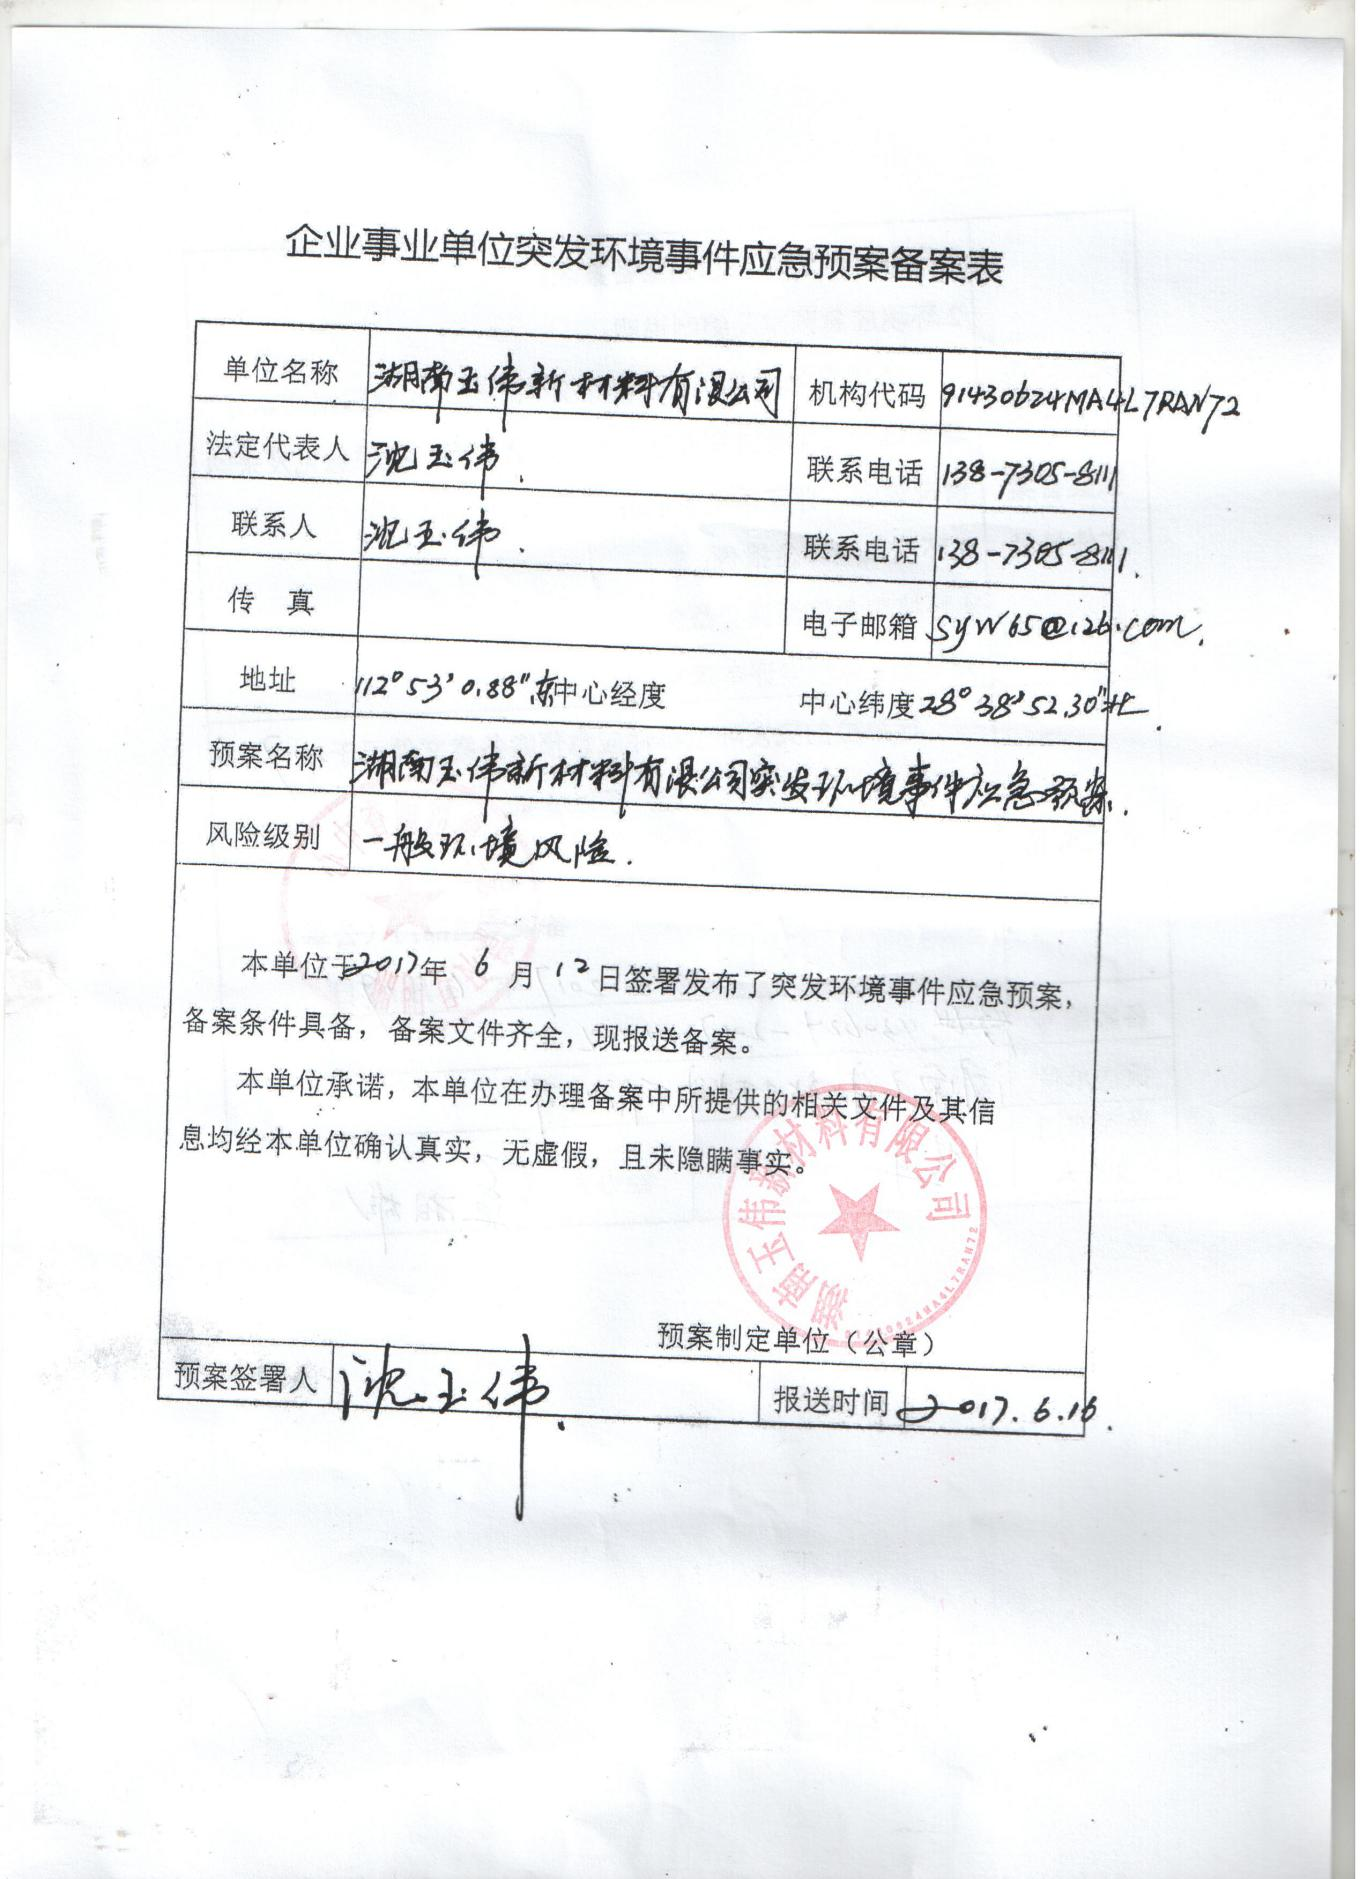 企业事业单位突发环境事件应急预案备案表
单位名称 湖南玉伟新材料有限公司 机构代码 91430624MA4L7RAN72
法定代表人 沈玉伟. 联系电话 138-7305-8111
联系人 沈玉伟. 联系电话 138-7305-8111.
传 真 电子邮箱 syw65@126.com.
地址 112°53'0.88"东 中心经度 中心纬度 28°38'52.30"北.
预案名称 湖南玉伟新材料有限公司突发环境事件应急预案.
风险级别 一般环境风险.
本单位于2017年 6 月 12日签署发布了突发环境事件应急预案,
备案条件具备，备案文件齐全，现报送备案。
本单位承诺，本单位在办理备案中所提供的相关文件及其信
息均经本单位确认真实，无虚假，且未隐瞒事实。
湖南玉伟新材料有限公司
91430624MA4L7RAN72
预案制定单位（公章）
预案签署人 沈玉伟. 报送时间 2017.6.16.